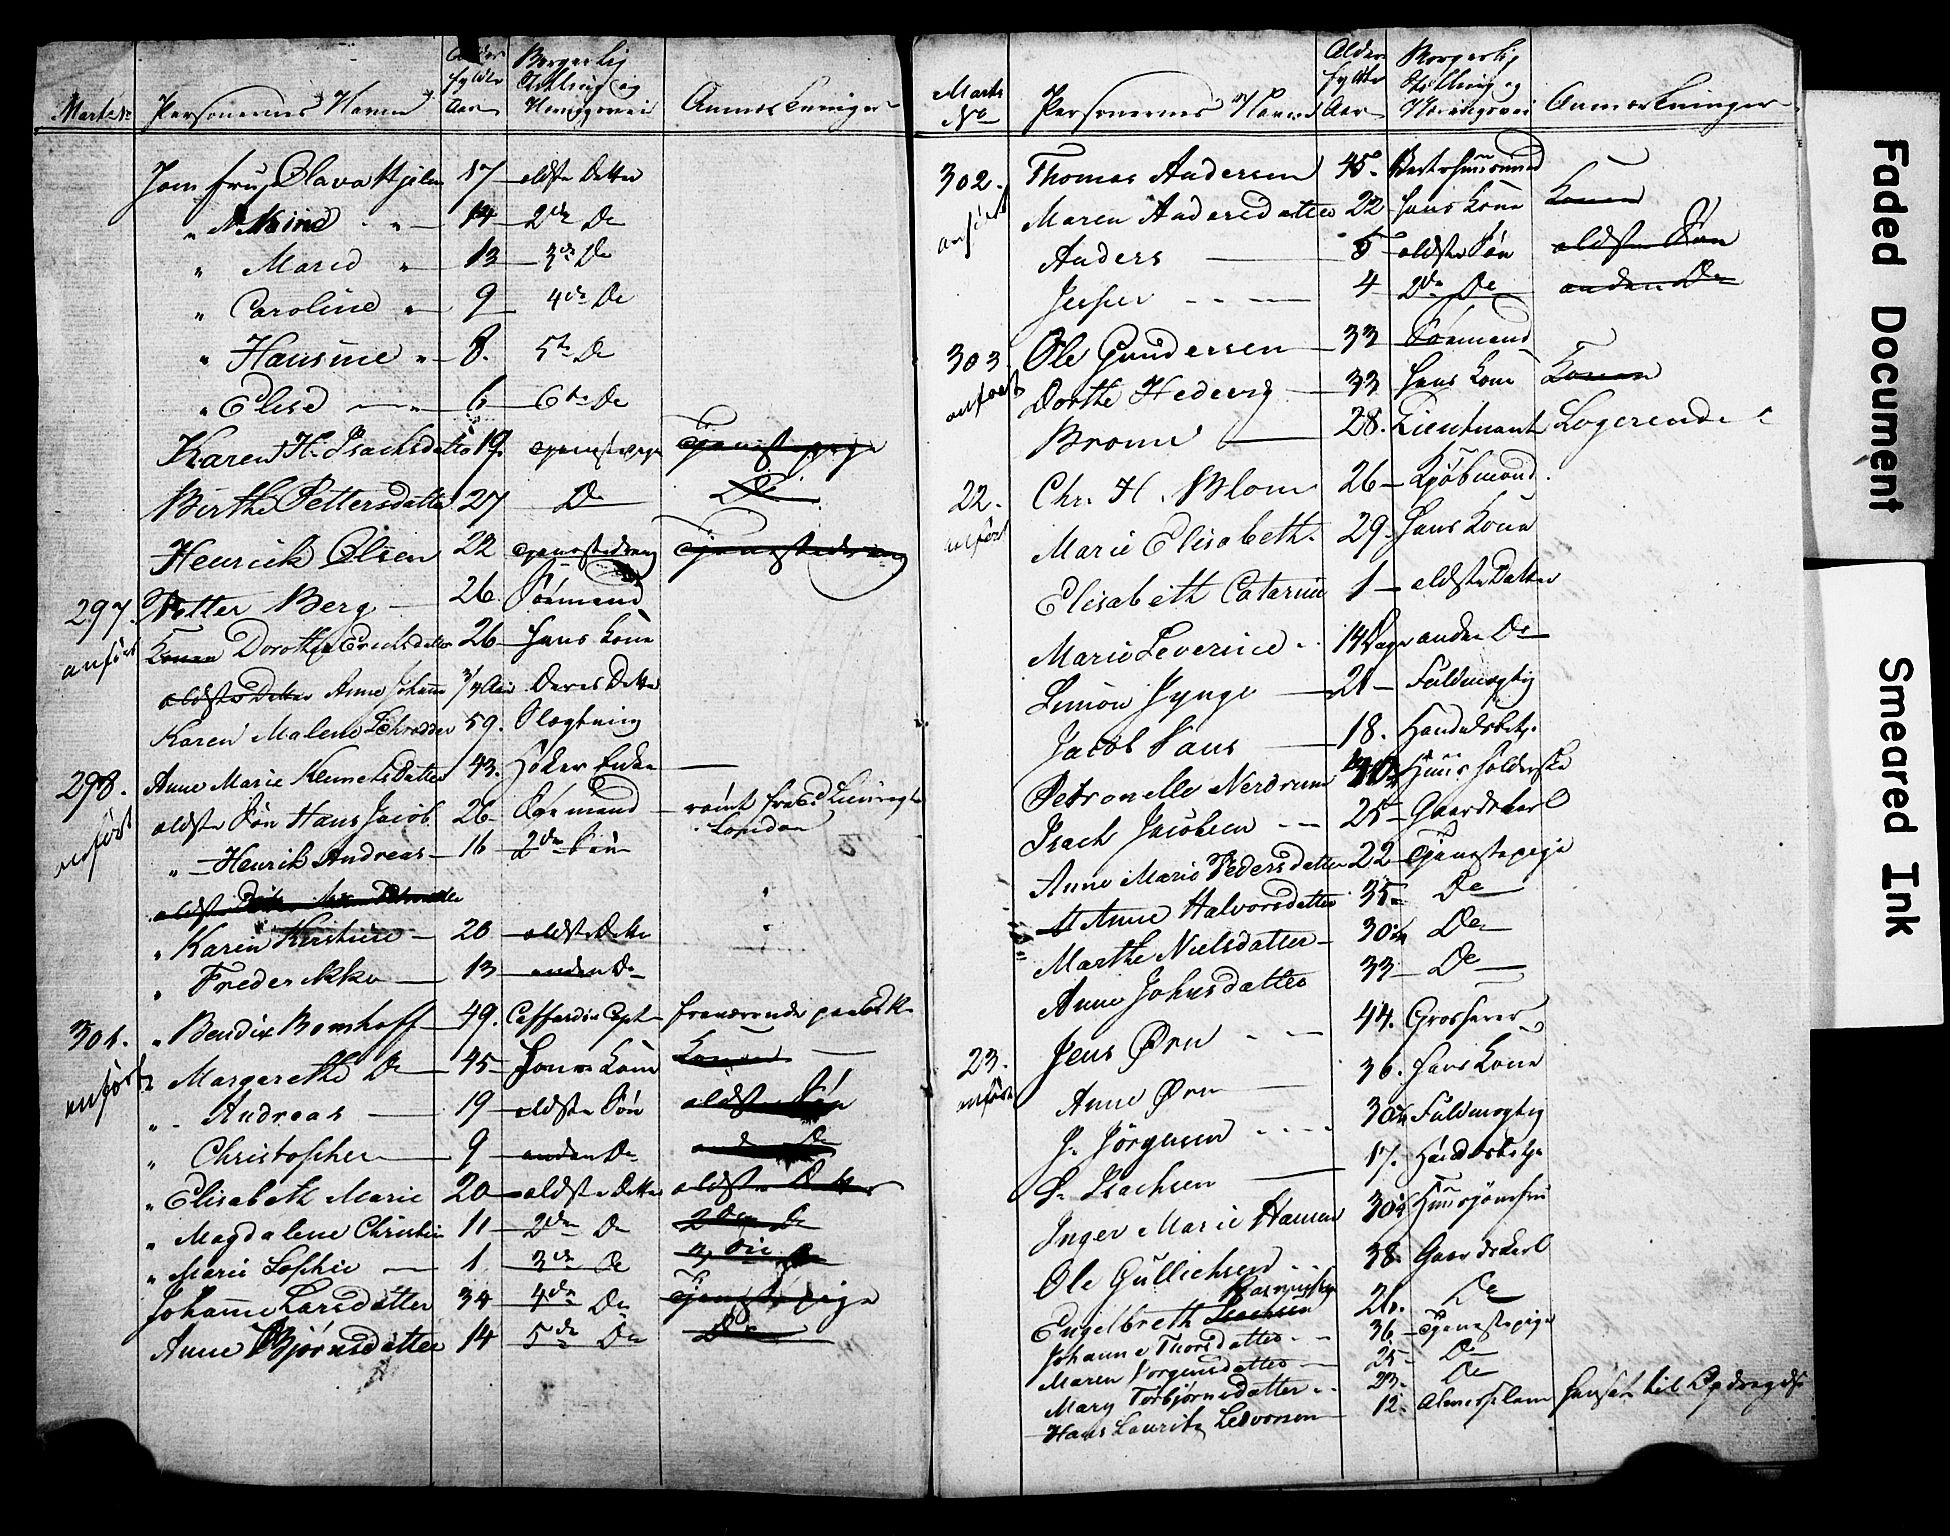 Martr: No Personernes Navne Alder fylte Aar Borgerlig Stilling og Næringsvei Anmærkninger
Jomfrue Olava Hjelm 17 eldste Datter
" Mine " 14 2de Do
" Marie " 13 3de Do
" Caroline " 9 4de Do
" Hansine " 8. 5te Do
" Elise " 6 6te Do
Karen H. Isachsdatter 19. Tjenestepige Tjenestepige
Birthe Pettersdatter 27 Do Do
Henrich Olsen 22 Tjenestedreng Tjenestedreng
297. Petter Berg 26. Sömand
anfört Konen Dorothea Erichsdatter 26 hans Kone
eldste Datter Anne Johanne 3/4 Aar Deres Datter
Karen Malene Schrødder 59. Slægtning
298. Anne Marie Kennetsdatter 43. Höker Enke
anfört eldste Sön Hans Jacob 26 Sömand römt fra
London
" Henrik Andreas 16 2den Sön
eldste
" Karen Kirstine 20 eldste Datter
" Frederikke 13 anden Do
301. " Bendix Bomhoff 49. Coffardie Capt fraværende paa
anfört Margerethe Do 45 hans Kone Konen
" Andreas 19 eldste Sön eldste Sön
" Christopher 9 anden Do anden Do
" Elisabeth Marie 20 eldste Datter eldste Datter
" Magdalene Christine 11 2den Do 2den Do
" Marie Sophie 1 3die Do 3die Do
Johanne Larsdatter 34 4de Do Tjenestepige
Anne Bjørnsdatter 14 5de Do Do
Martr No Personernes Navne Alder fylte Aar Borgerlig Stilling og Næringsvei Anmærkninger
302. Thomas Andersen 45.
anfört Maren Andersdatter 22 hans Kone Konen
Anders 5 eldste Sön eldste Sön
Jesper 4 2den Do anden Do
303 Ole Gundersen 33 Sömand
anfört Dorthe Hedevig 33 hans Kone Konen
Bronn 28. Lieutnant Logerende
22. Chr. H. Blom 26 Kjöbmand.
anfört Marie Elisabeth. 29. hans Kone
Elisabeth Catarine 1 eldste Datter
Marie Severine 14 Dage anden Do
Simon Jynge 21 Fuldmægtig
Jacob Paus 18. Handelsbetj.
Petronelle Nerdrum Huusholderske
Isach Jacobsen 25 Gaardskarl
Anne Marie Pedersdatter 22 Tjenestepige
Anne Halvorsdatter 35 Do
Marthe Nielsdatter 30 Do
Anne Johnsdatter 33 Do
23. Jens Ørn 44. Grosserer
anfört Anne Ørn 36. hans Kone
P. Jörgensen 30 Fuldmægtig
S. Isachsen 17. Handelsbetje
Inger Marie Hansen 30 Huusjomfru
Ole Gullichsen 38. Gaardskarl
Rasmussen
Engelbreth Isachsen 26. Do
Johanne Thorsdatter 36 Tjenestepige
Maren Jorgensdatter 25 Do
Mary Torbjørnsdatter 23. Do
Hans Lauritz Ledvorsen 12. Almisselem hensat til Opdragelse
Faded Document
Smeared Ink